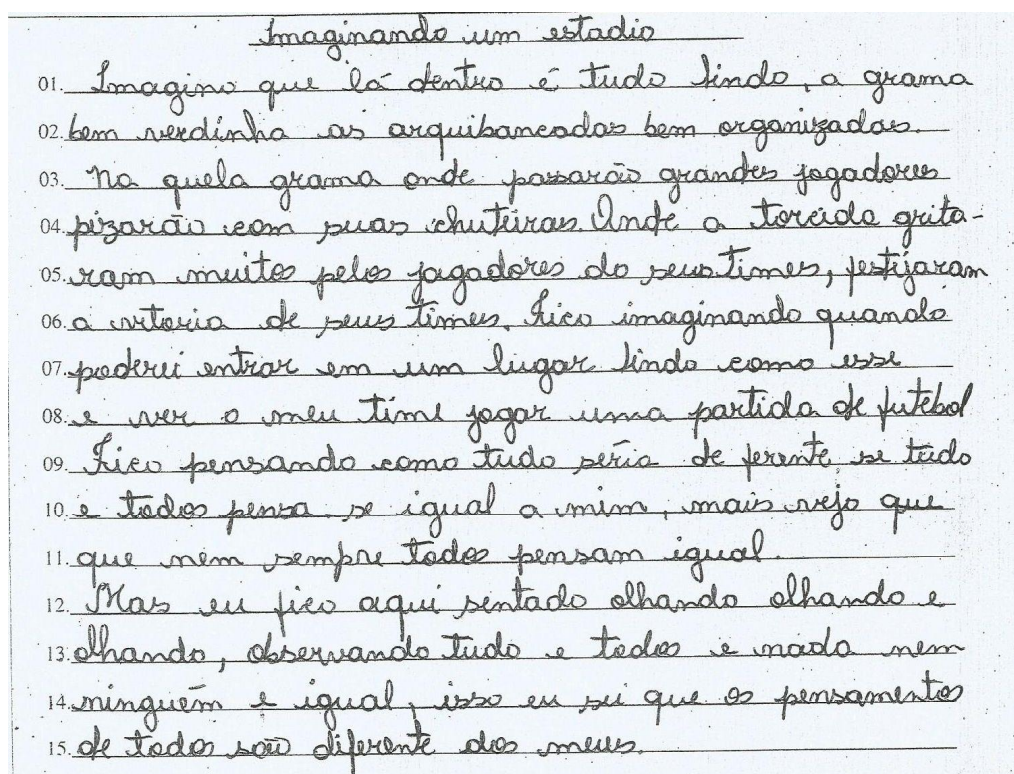 Imaginando um estadio
01. Imagino que lá dentro é tudo lindo, a grama
02. bem verdinha as arquibancadas bem organizadas.
03. Na quela grama onde passarão grandes jogadores
04. pizarão com suas chuteiras. Onde a torcida grita-
05. ram muitos pelos jogadores do seus times, festijaram
06. a vitoria de seus times. Fico imaginando quando
07. poderei entrar em um lugar lindo como esse
08. e ver o meu time jogar uma partida de futebol
09. Fico pensando como tudo séria de ferente se tudo
10. e todos pensa se igual a mim, mais vejo que
11. que nem sempre todos pensam igual.
12. Mas eu fico aqui sentado olhando olhando e
13. olhando, observando tudo e todos e nada nem
14. ninguém e igual, isso eu sei que os pensamentos
15. de todos são diferente dos meus.